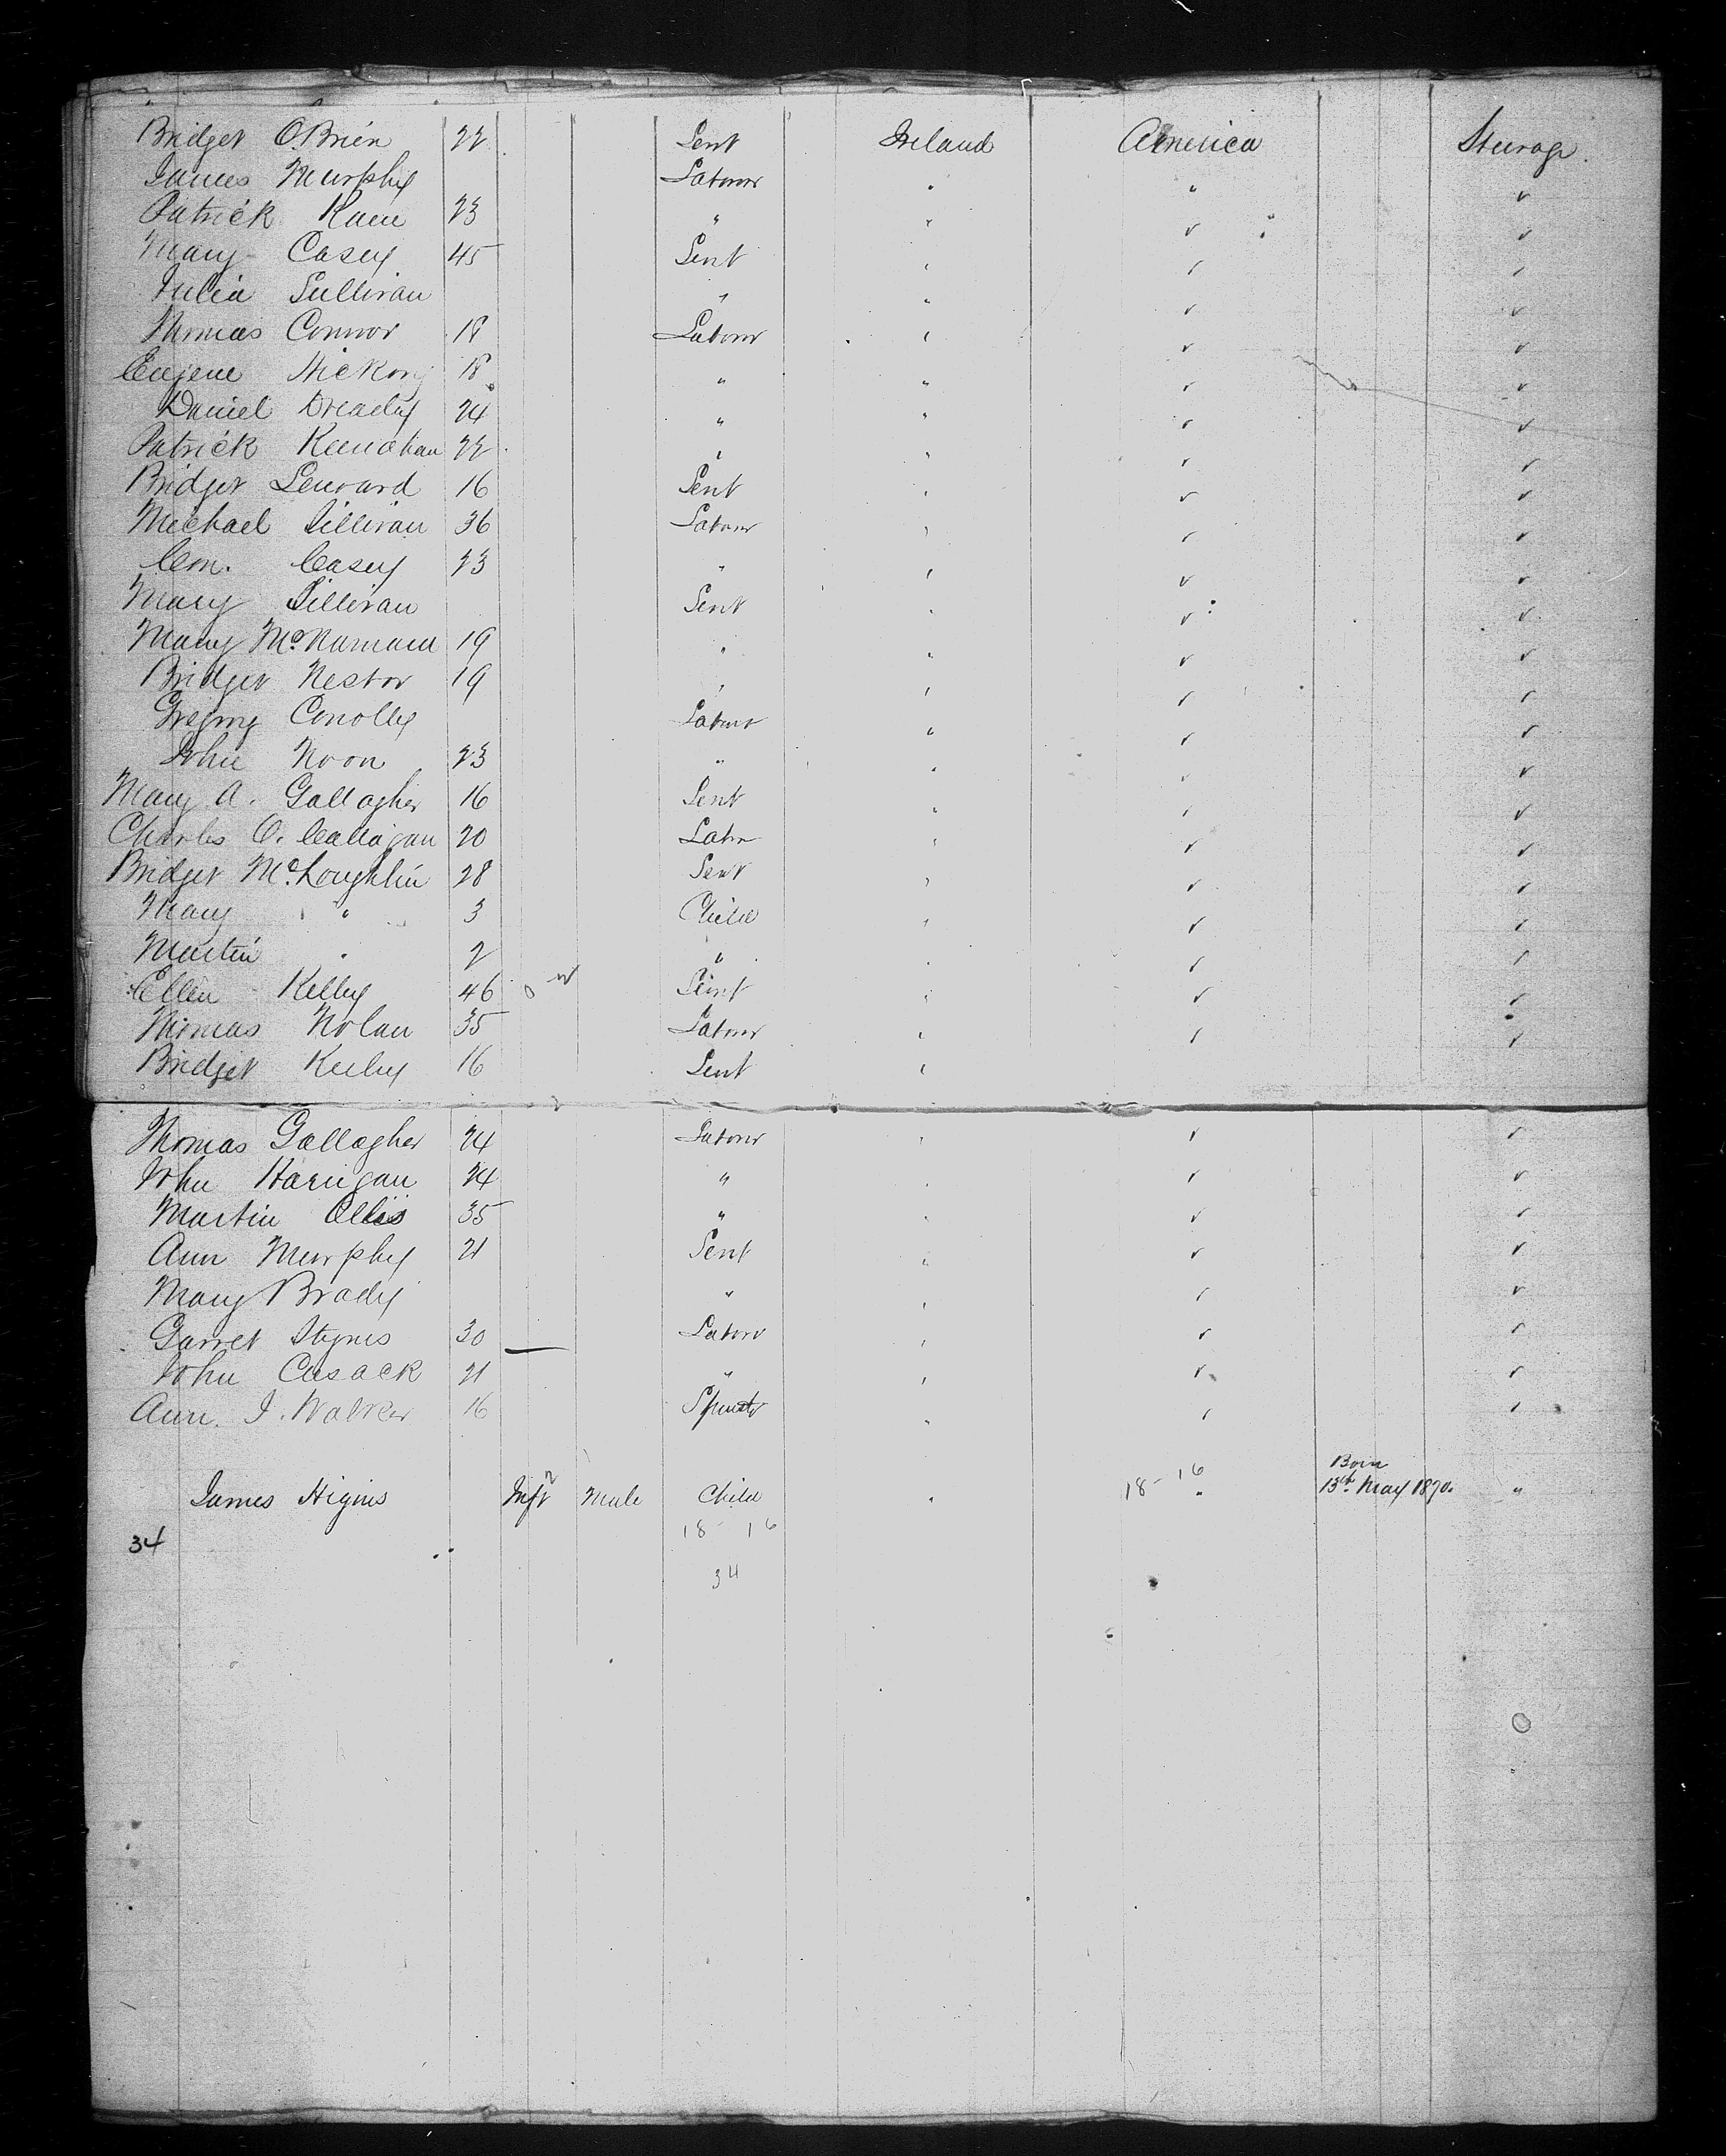 Bridget O'Brien 22 Sent Ireland America Steerage.
James Murphy Laborer " " "
Patrick Kane 23 " " " "
Mary Casey 45 Sent " " "
Julia Sullivan " " " "
Thomas Connor 18 Laborer " " "
Eugene Hickory 18 " " " "
Daniel 24 " " " "
Patrick 22 " " " "
Bridget Lenard 16 Sent " " "
Michael Sillivan 36 Laborer " " "
Casey 23 " " " "
Mary Sillivan Sent " " "
Mary McNamara 19 " " " "
Bridget Nestor 19 " " " "
Gregory Conolly Laborer " " "
John Noon 23 " " " "
Mary A. Gallagher 16 Sent " " "
Charles O. Callagan 20 Labr " " "
Bridget McLoughlin 28 Sent " " "
Mary " 3 Child " " "
Martin " 2 " " " "
Ellen Kelly 46 Sent " " "
Thomas Nolan 35 Laborer " " "
Bridget 16 Sent "
Thomas Gallagher 24 Laborer " " "
John Harrigan 24 " " " "
Martin 35 " " " "
Ann Murphy 21 Sent " " "
Mary Brady " " " "
Garret Stynes 30 Laborer " " "
John Cusack 21 " " " "
Ann. J. Walker 16 " " "
18-16 Born
James Higins Inft Male Child " " 13th May 1870. "
18-16
34
34